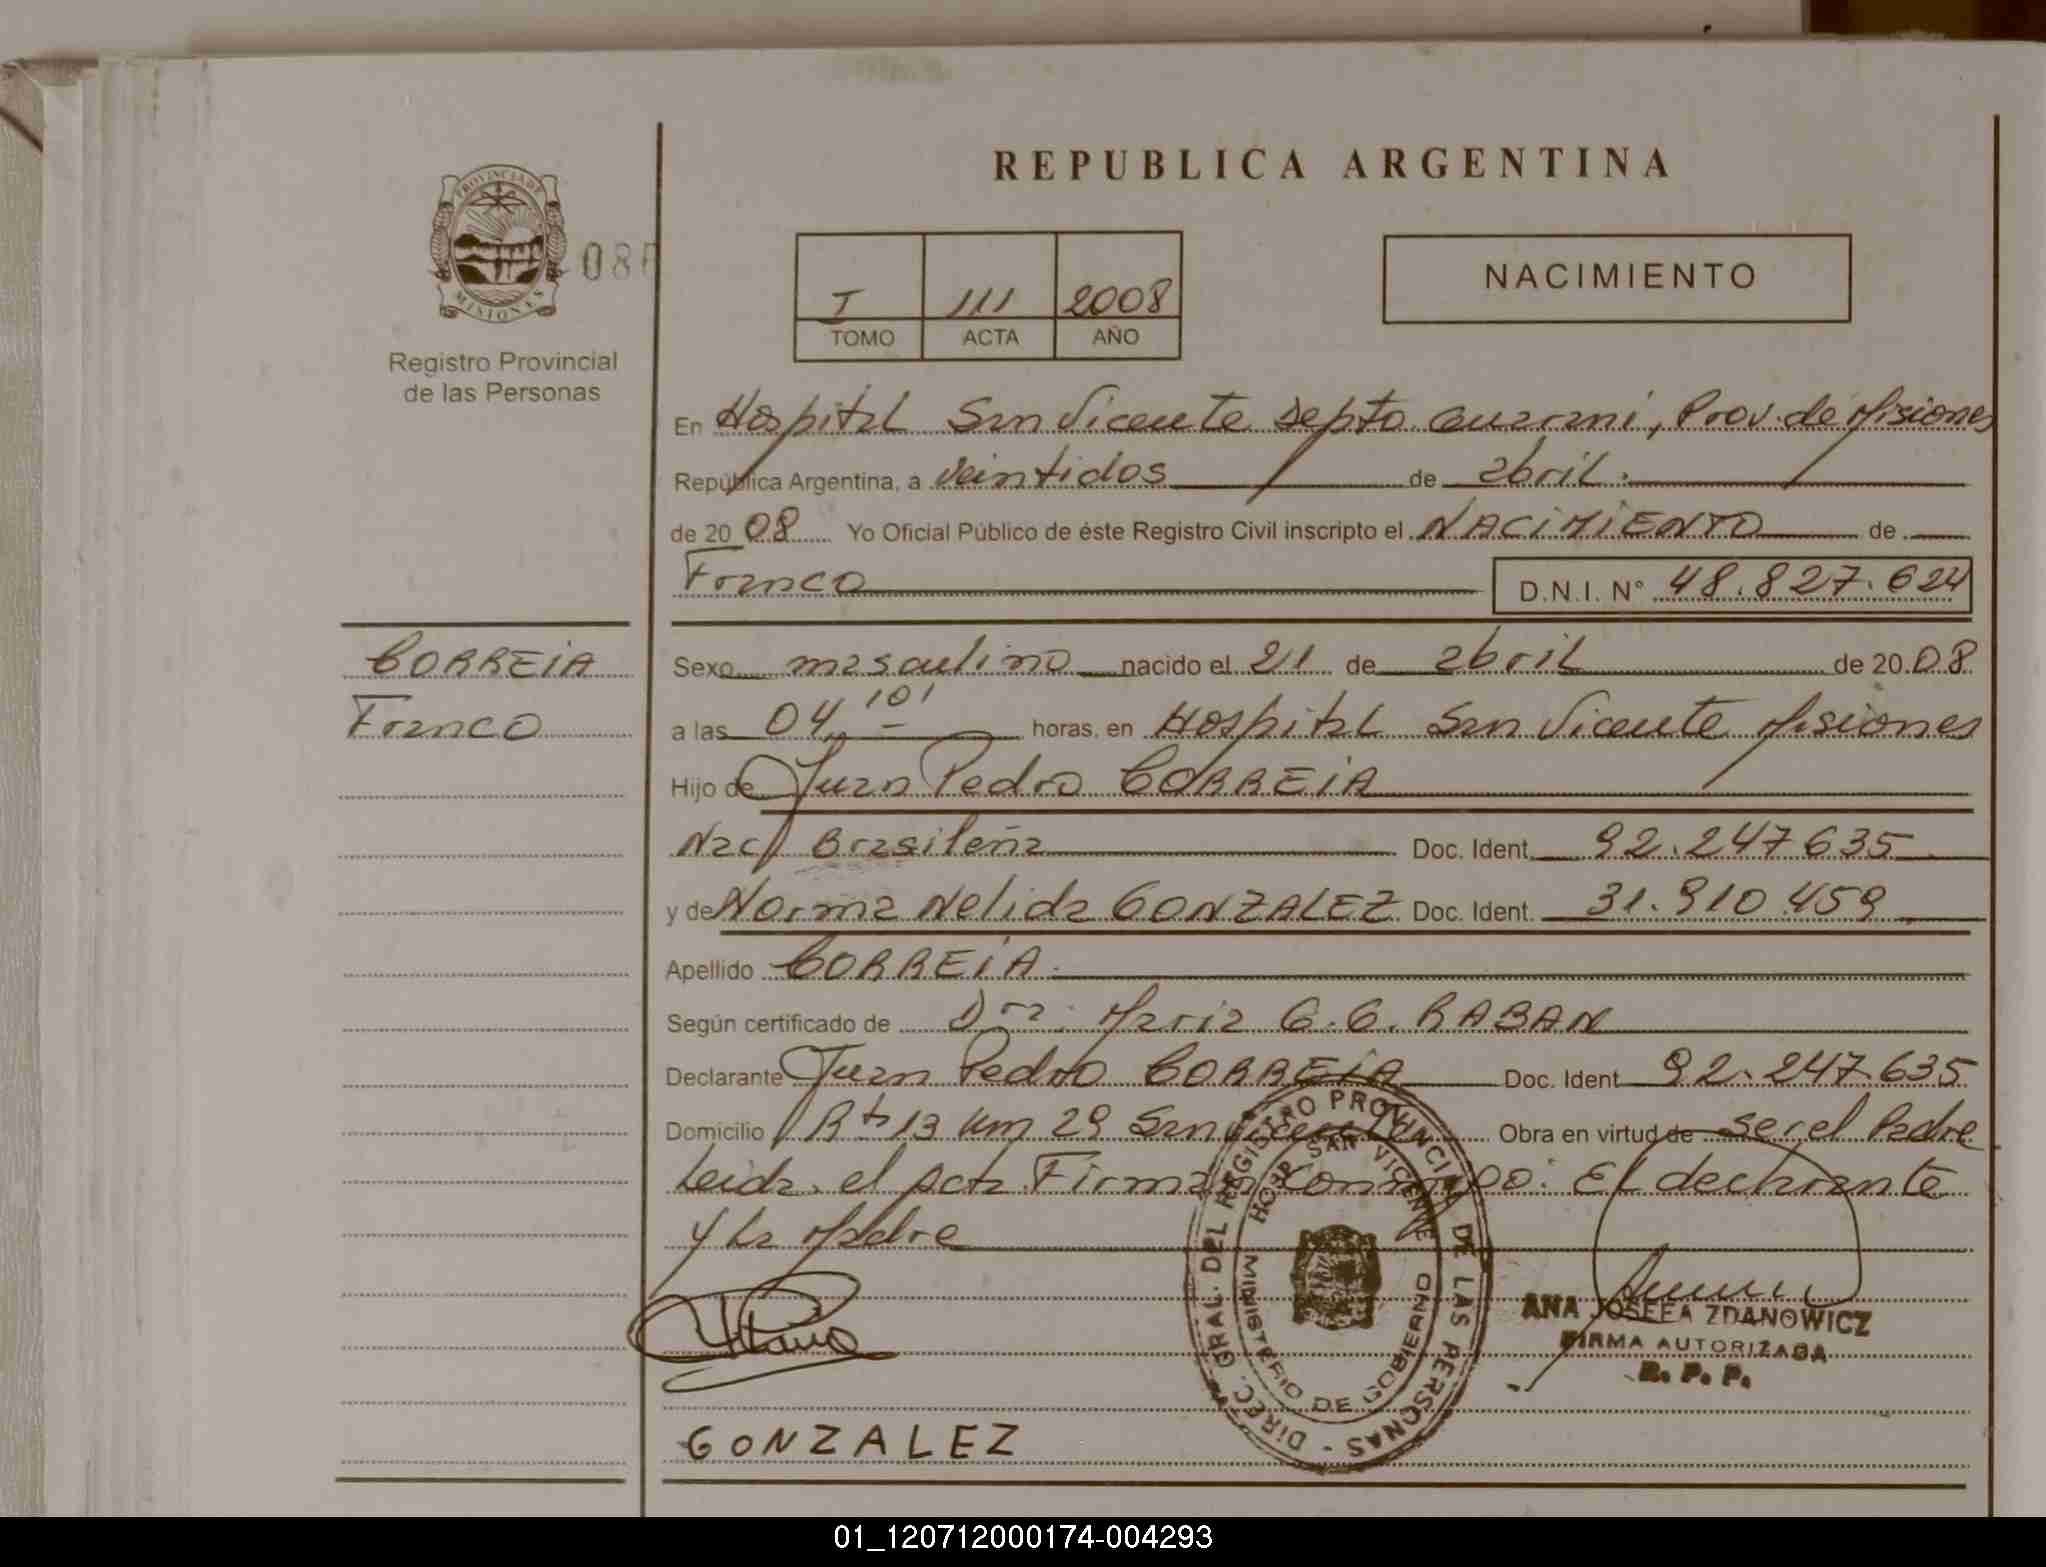 REPUBLICA ARGENTINA
PROVINCIA DE MISIONES
08
Registro Provincial
de las Personas
I 111 2008
TOMO ACTA AÑO
NACIMIENTO
En Hospital San Vicente Depto Guarani, Prov. de Misiones
República Argentina, a veintidos de abril.
de 20 08 Yo Oficial Público de éste Registro Civil inscripto el NACIMIENTO de
Franco D.N.I. N° 48.827.624
CORREIA
Franco
Sexo masculino nacido el 21 de abril de 20 08
a las 04,10' horas, en Hospital San Vicente Misiones
Hijo de Juan Pedro CORREIA
Nac/ Brasileña Doc. Ident. 92.247.635
y de Norma Nelida GONZALEZ Doc. Ident. 31.910.459
Apellido CORREIA.
Según certificado de Dra. Maria G. G. RABAN
Declarante Juan Pedro CORREIA Doc. Ident 92.247.635
Domicilio Rta 13 Km 29 San Vicente Obra en virtud de ser el Padre
Leida el acta Firman conmigo: El declarante
y la Madre
DIREC. GRAL. DEL REGISTRO PROVINCIAL DE LAS PERSONAS -
HOSP. SAN VICENTE
MINISTERIO DE GOBIERNO
ANA JOSEFA ZDANOWICZ
FIRMA AUTORIZADA
R. P. P.
GONZALEZ
01_120712000174-004293